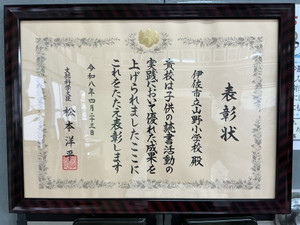 表彰状
伊佐市立山野小学校 殿
貴校は子供の読書活動の
実践において優れた成果を
上げられましたここに
これをたたえ表彰します
令和八年四月二十三日
文部科学大臣 松本洋平